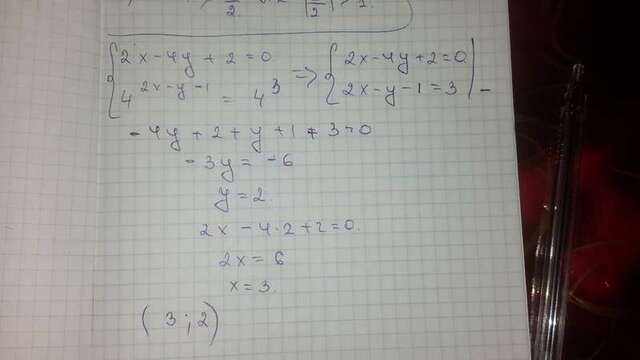 { 2x - 4y + 2 = 0 => { 2x - 4y + 2 = 0 |
4^{2x-y-1} = 4^3 2x - y - 1 = 3 | -
- 4y + 2 + y + 1 + 3 = 0
- 3y = - 6
y = 2.
2x - 4·2 + 2 = 0.
2x = 6
x = 3.
( 3 ; 2 )